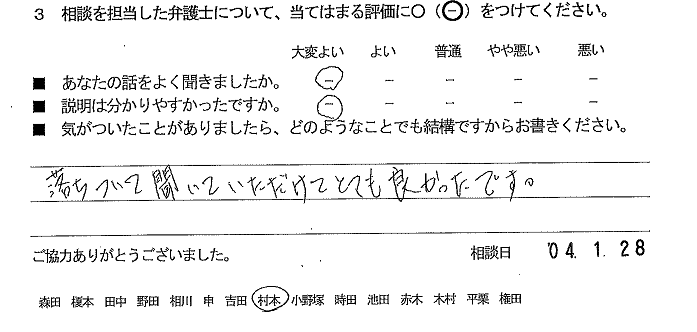 3 相談を担当した弁護士について、当てはまる評価に○（⊖）をつけてください。
大変よい よい 普通 やや悪い 悪い
■ あなたの話をよく聞きましたか。 － － － － －
■ 説明は分かりやすかったですか。 － － － － －
■ 気がついたことがありましたら、どのようなことでも結構ですからお書きください。
落ちついて聞いていただけてとても良かったです。
ご協力ありがとうございました。 相談日 '04. 1. 28
森田 榎本 田中 野田 相川 申 吉田 村本 小野塚 時田 池田 赤木 木村 平栗 権田